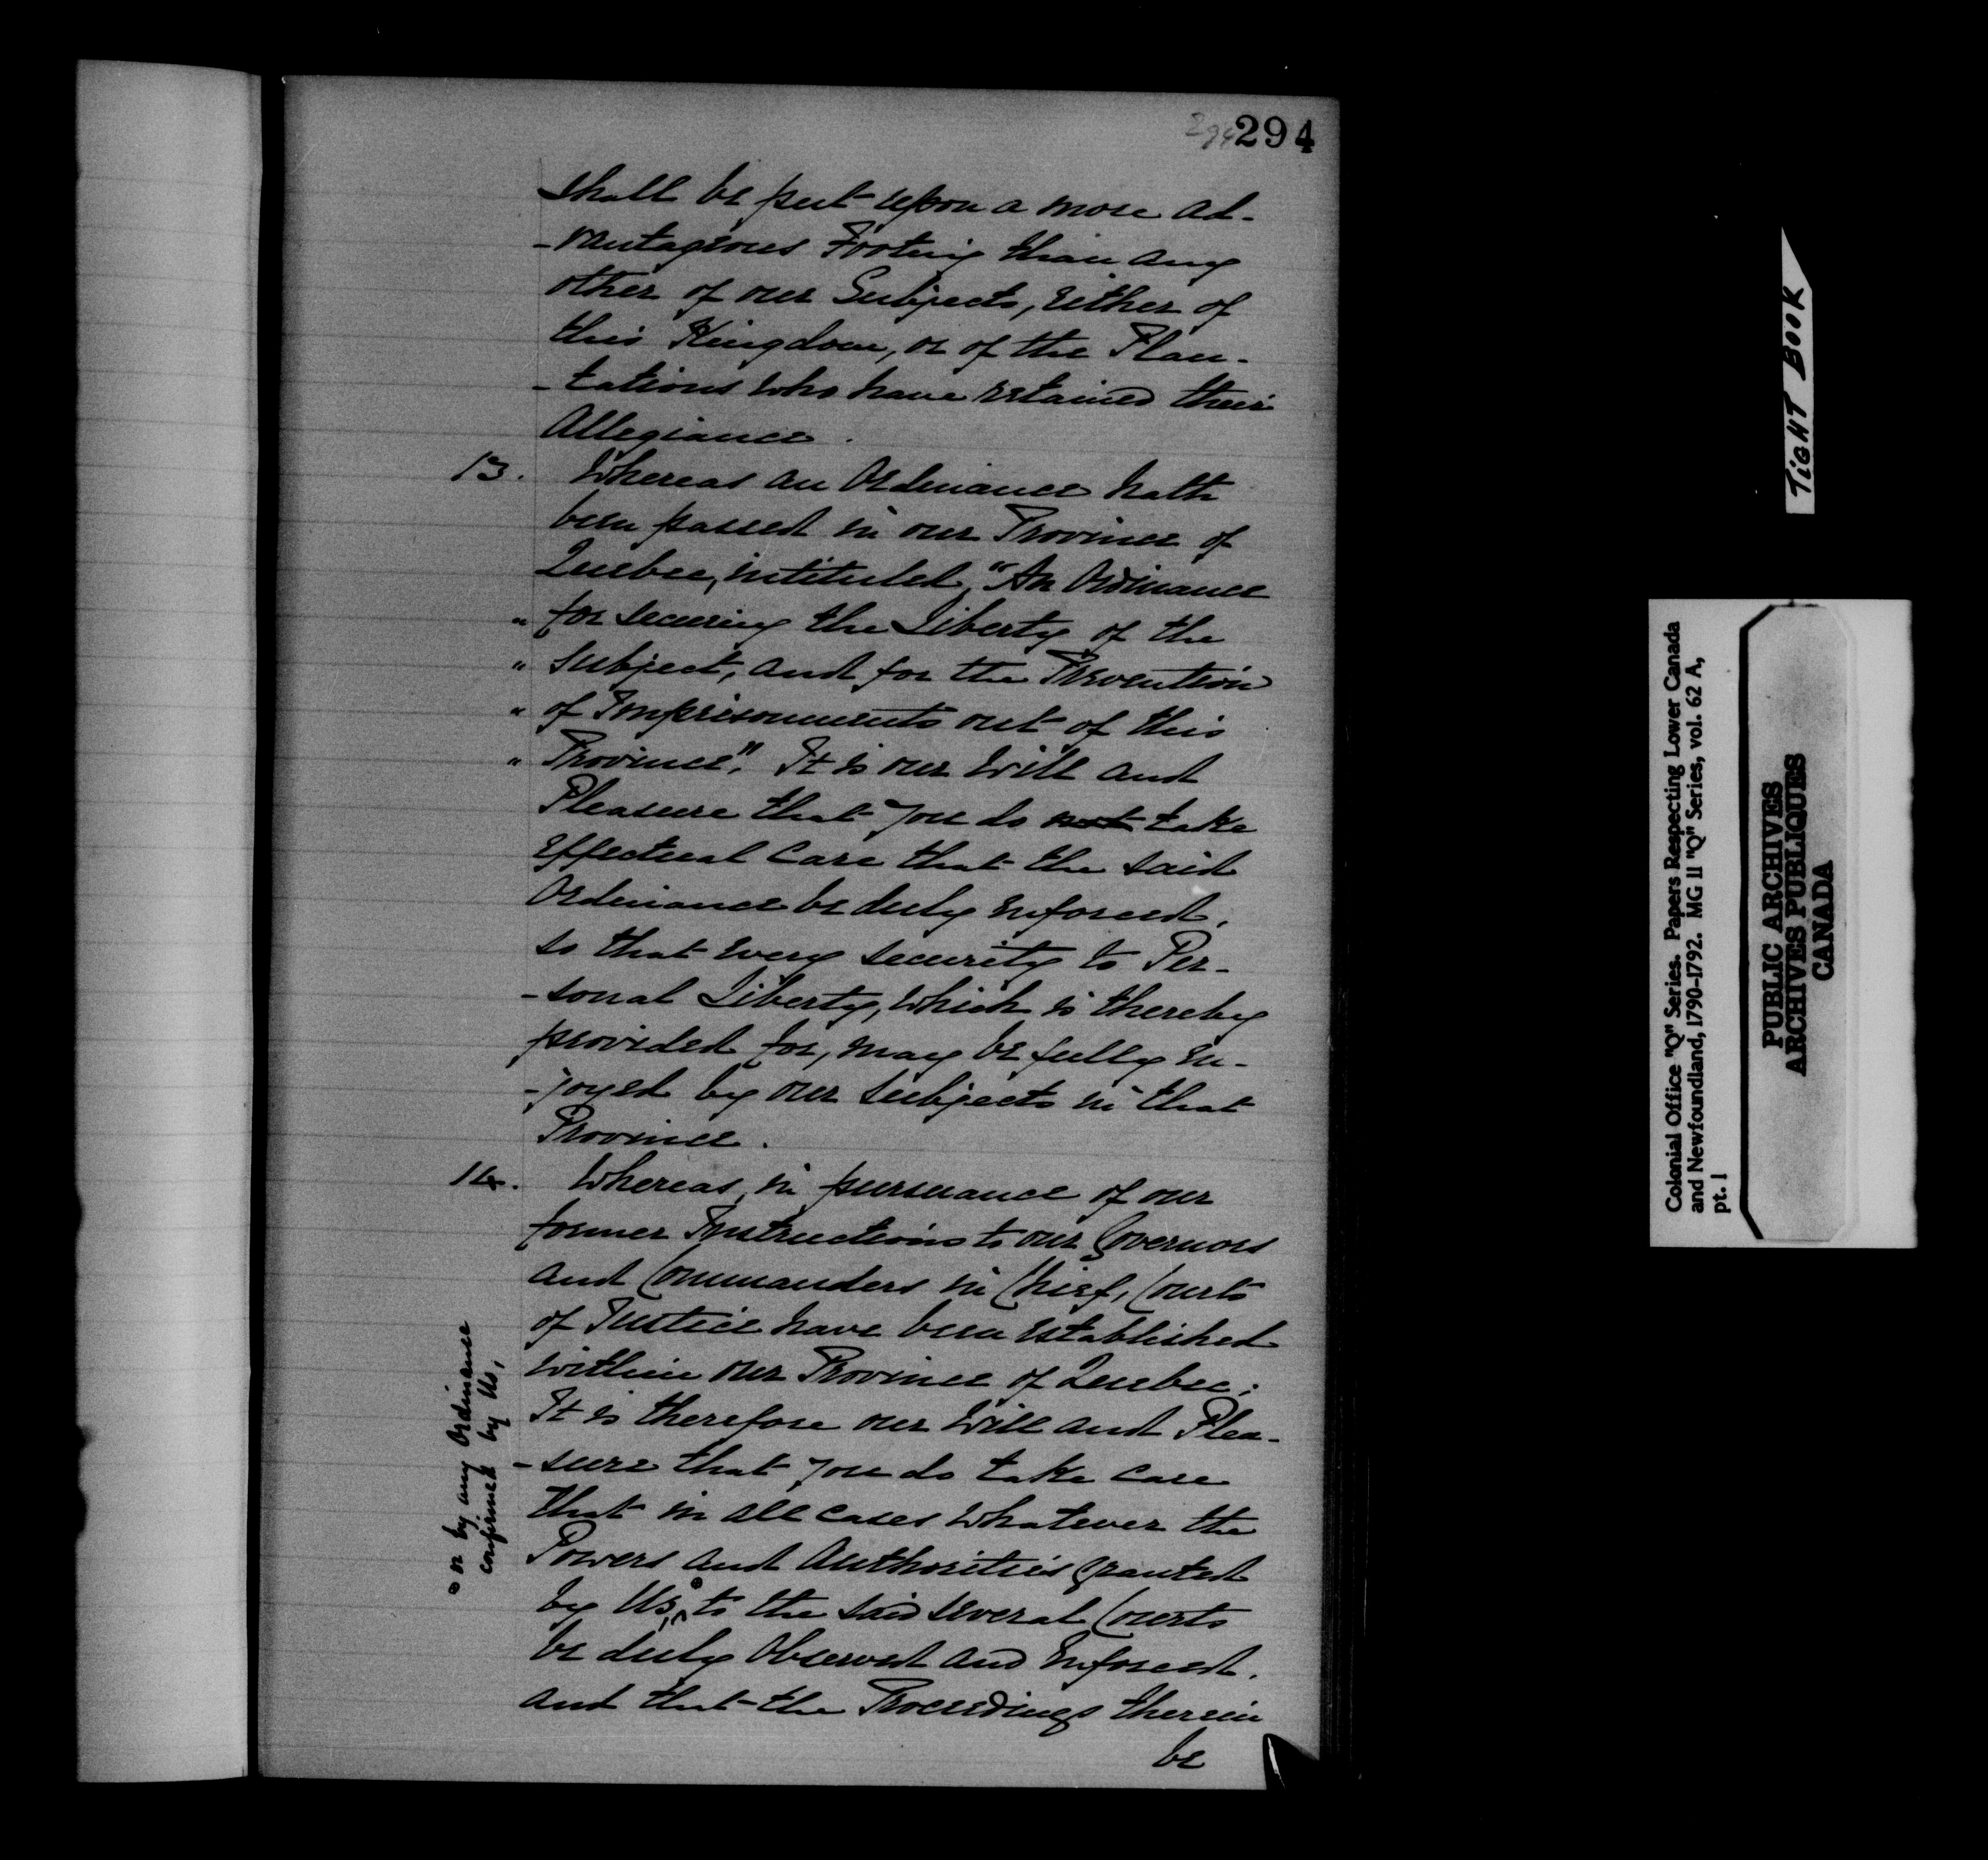 294 294
shall be put upon a more ad-
-vantageous Footing than any
other of our Subjects, either of
this Kingdom, or of the Plan-
-tations who have retained their
Allegiance.
13. Whereas an Ordinance hath
been passed in our Province of
Quebec, intituled, "An Ordinance
" for securing the Liberty of the
" subject, and for the Prevention
" of Imprisonments out of this
" Province". It is our Will and
Pleasure that you do not take
effectual Care that the said
Ordinance be duly enforced,
so that every security to Per-
-sonal Liberty, which is thereby
provided for, may be fully en-
-joyed by our subjects in that
Province.
14. Whereas, in pursuance of our
former Instructions to our Governors
and Commanders in Chief, Courts
of Justice have been established
within our Province of Quebec;
It is therefore our Will and Plea-
-sure that you do take Care
that in all cases whatever the
Powers and Authorities granted
by Us, to the said several Courts
be duly Observed and Enforced,
and that the Proceedings therein
be
or by any Ordinance
confirmed by Us,
TIGHT BOOK
Colonial Office "Q" Series. Papers Respecting Lower Canada
and Newfoundland, 1790-1792. MG 11 "Q" Series, vol. 62 A,
pt. 1
PUBLIC ARCHIVES
ARCHIVES PUBLIQUES
CANADA